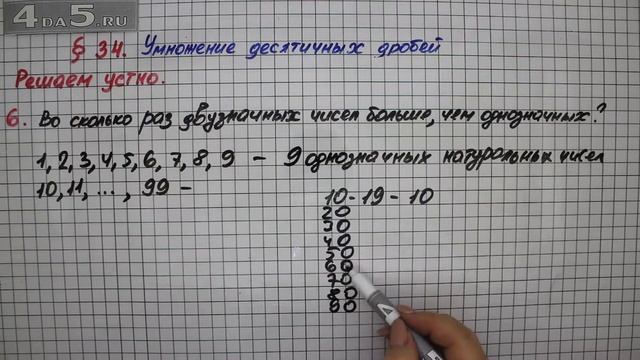 4DA5.RU
§ 34. Умножение десятичных дробей
Решаем устно.
6. Во сколько раз двузначных чисел больше, чем однозначных?
1, 2, 3, 4, 5, 6, 7, 8, 9 – 9 однозначных натуральных чисел
10, 11, ..., 99 –
10 - 19 - 10
20
30
40
50
60
70
80
90